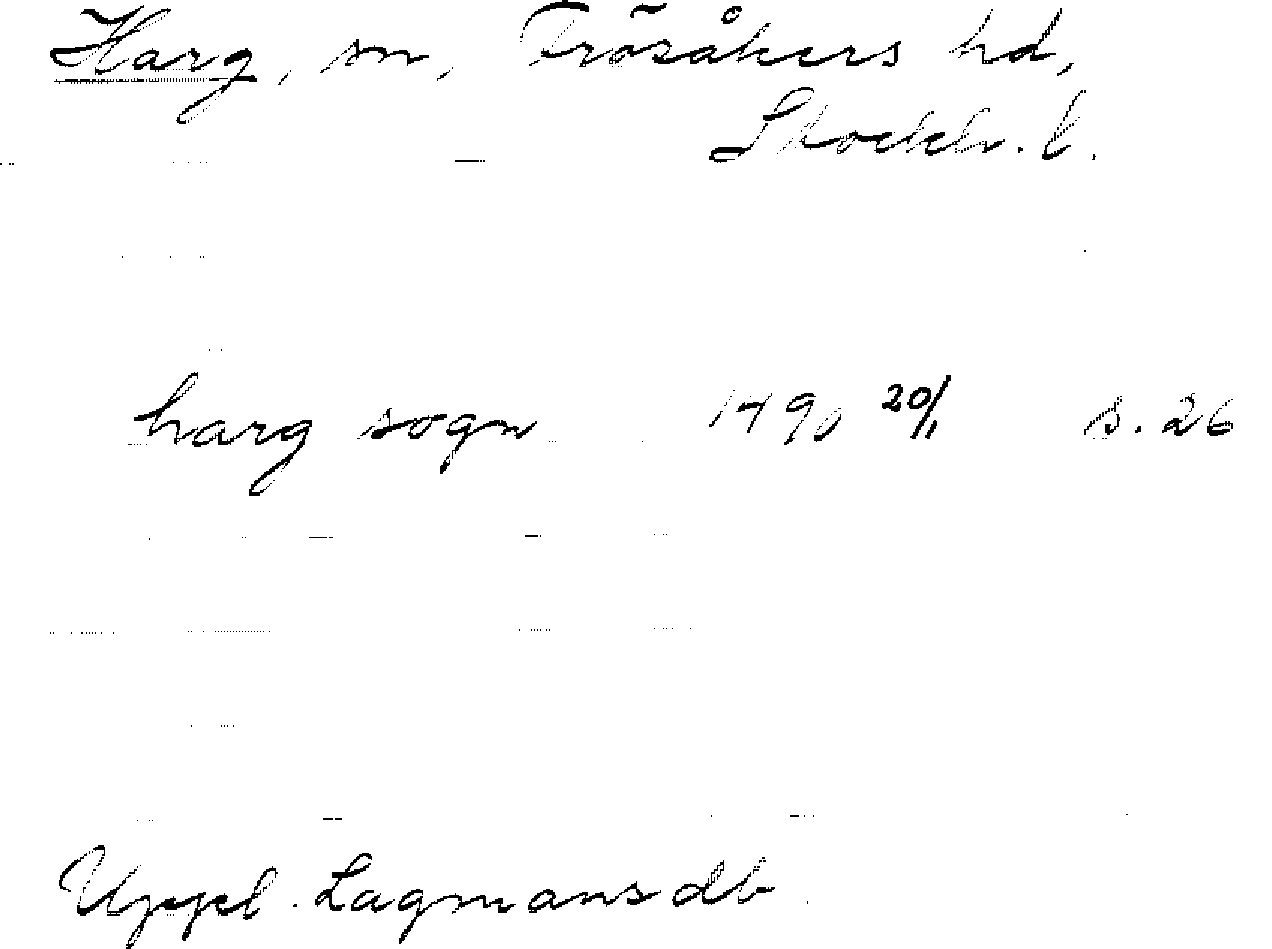 Harg, sn, Frösåkers hd,
Stockh. l.
harg sogn 1490 20/1 s. 26
Uppl. Lagmansdb